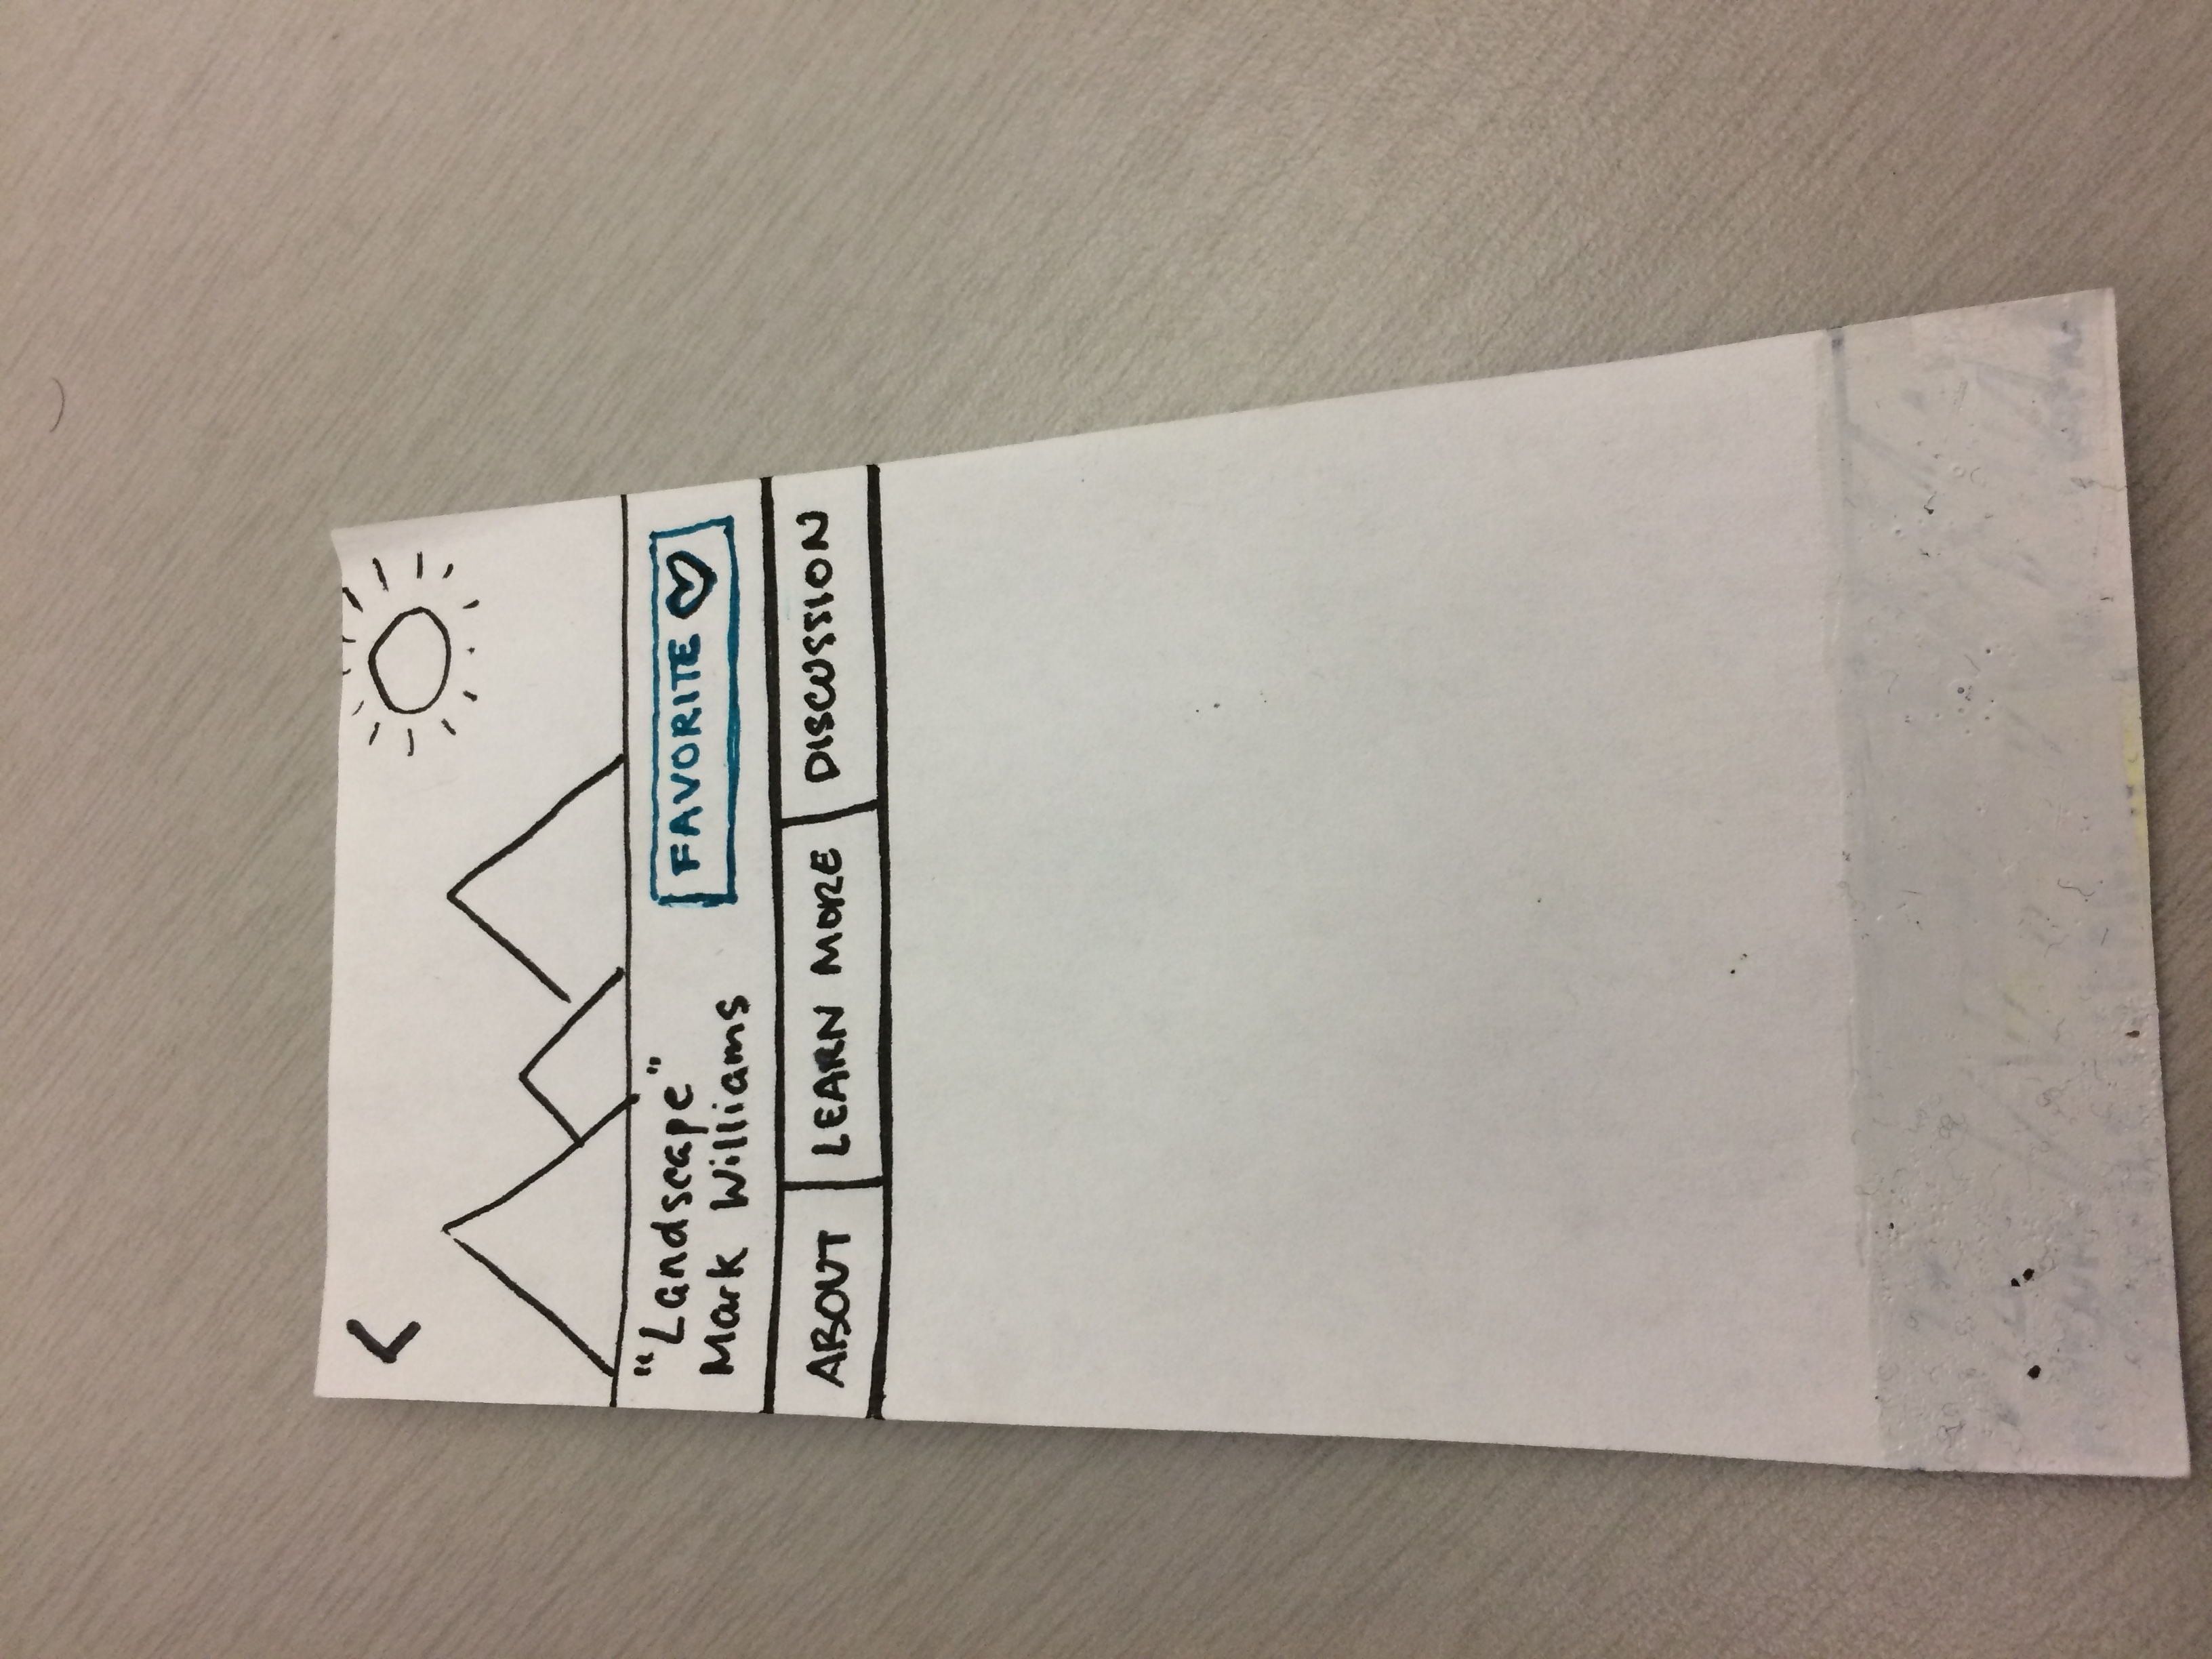 "Landscape"
Mark Williams
FAVORITE
ABOUT
LEARN MORE
DISCUSSION